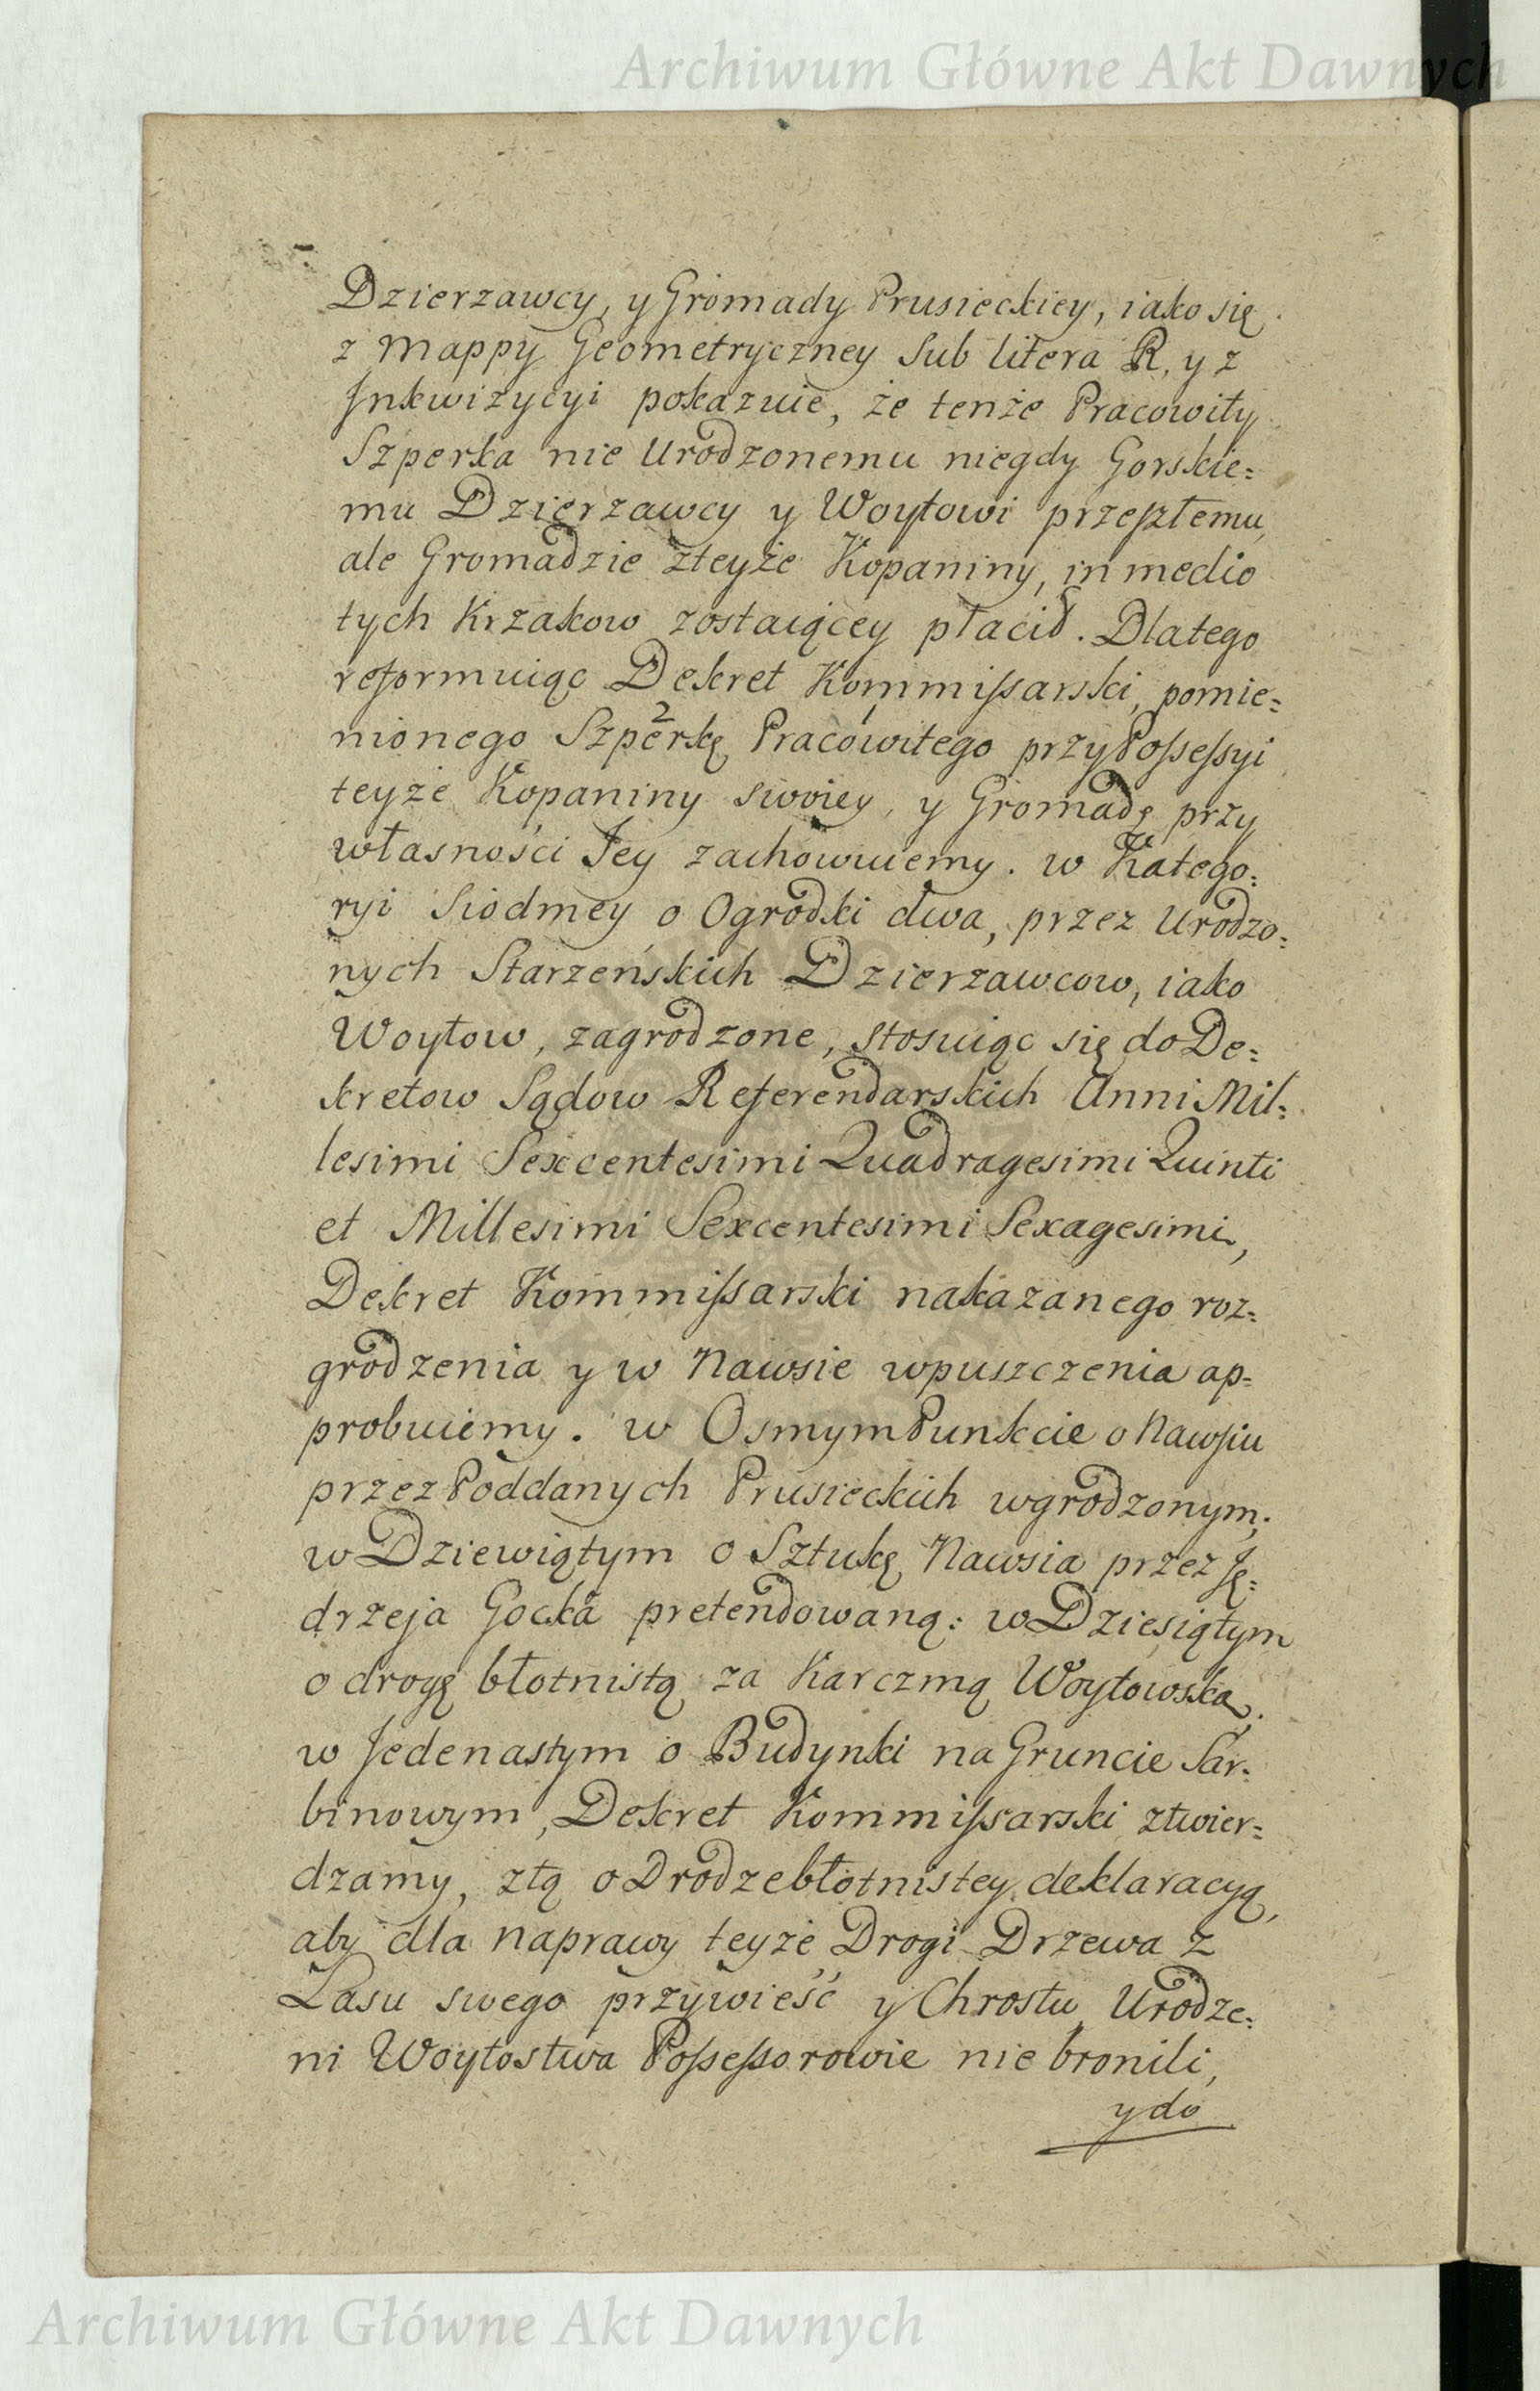 Archiwum Główne Akt Dawnych
Dzierzawcy, y Gromady Prusieckiey, iako się
z Mappy Geometryczney Sub litera R, y z
Jnkwizycyi pokazuie, że tenże Pracowity
Szperka nie Urodzonemu niegdy Gorskie=
mu Dzierzawcy y Woytowi przeszłemu,
ale Gromadzie zteyże Kopaniny, in medio
tych Krzakow zostaiącey płacił. Dlatego
reformuiąc Dekret Kommissarski, pomie=
nionego Szperkę Pracowitego przy Possessyi
teyże Kopaniny swoiey, y Gromadę przy
własności Jey zachowuiemy. w Katego=
ryi Siodmey o Ogrodki dwa, przez Urodzo=
nych Starzeńskich Dzierzawcow, iako
Woytow, zagrodzone, stosuiąc się do De=
kretow Sądow Referendarskich Anni Mil=
lesimi Sexcentesimi Quadragesimi Quinti
et Millesimi Sexcentesimi Sexagesimi,
Dekret Kommissarski nakazanego roz=
grodzenia y w Nawsie wpuszczenia ap=
probuiemy. w Osmym Punkcie o Nawsiu
przez Poddanych Prusieckich wgrodzonym;
w Dziewiątym o Sztukę Nawsia przez Ję=
drzeja Gocka pretendowaną: w Dziesiątym
o drogę błotnistą za Karczmą Woytowską.
w Jedenastym o Budynki na Gruncie Sar=
binowym, Dekret Kommissarski ztwier=
dzamy, ztą o Drodze błotnistey deklaracyą,
aby dla naprawy teyże Drogi Drzewa z
Lasu swego przywieść y Chrostu Urodze=
ni Woytostwa Possessorowie nie bronili,
y do
Archiwum Główne Akt Dawnych